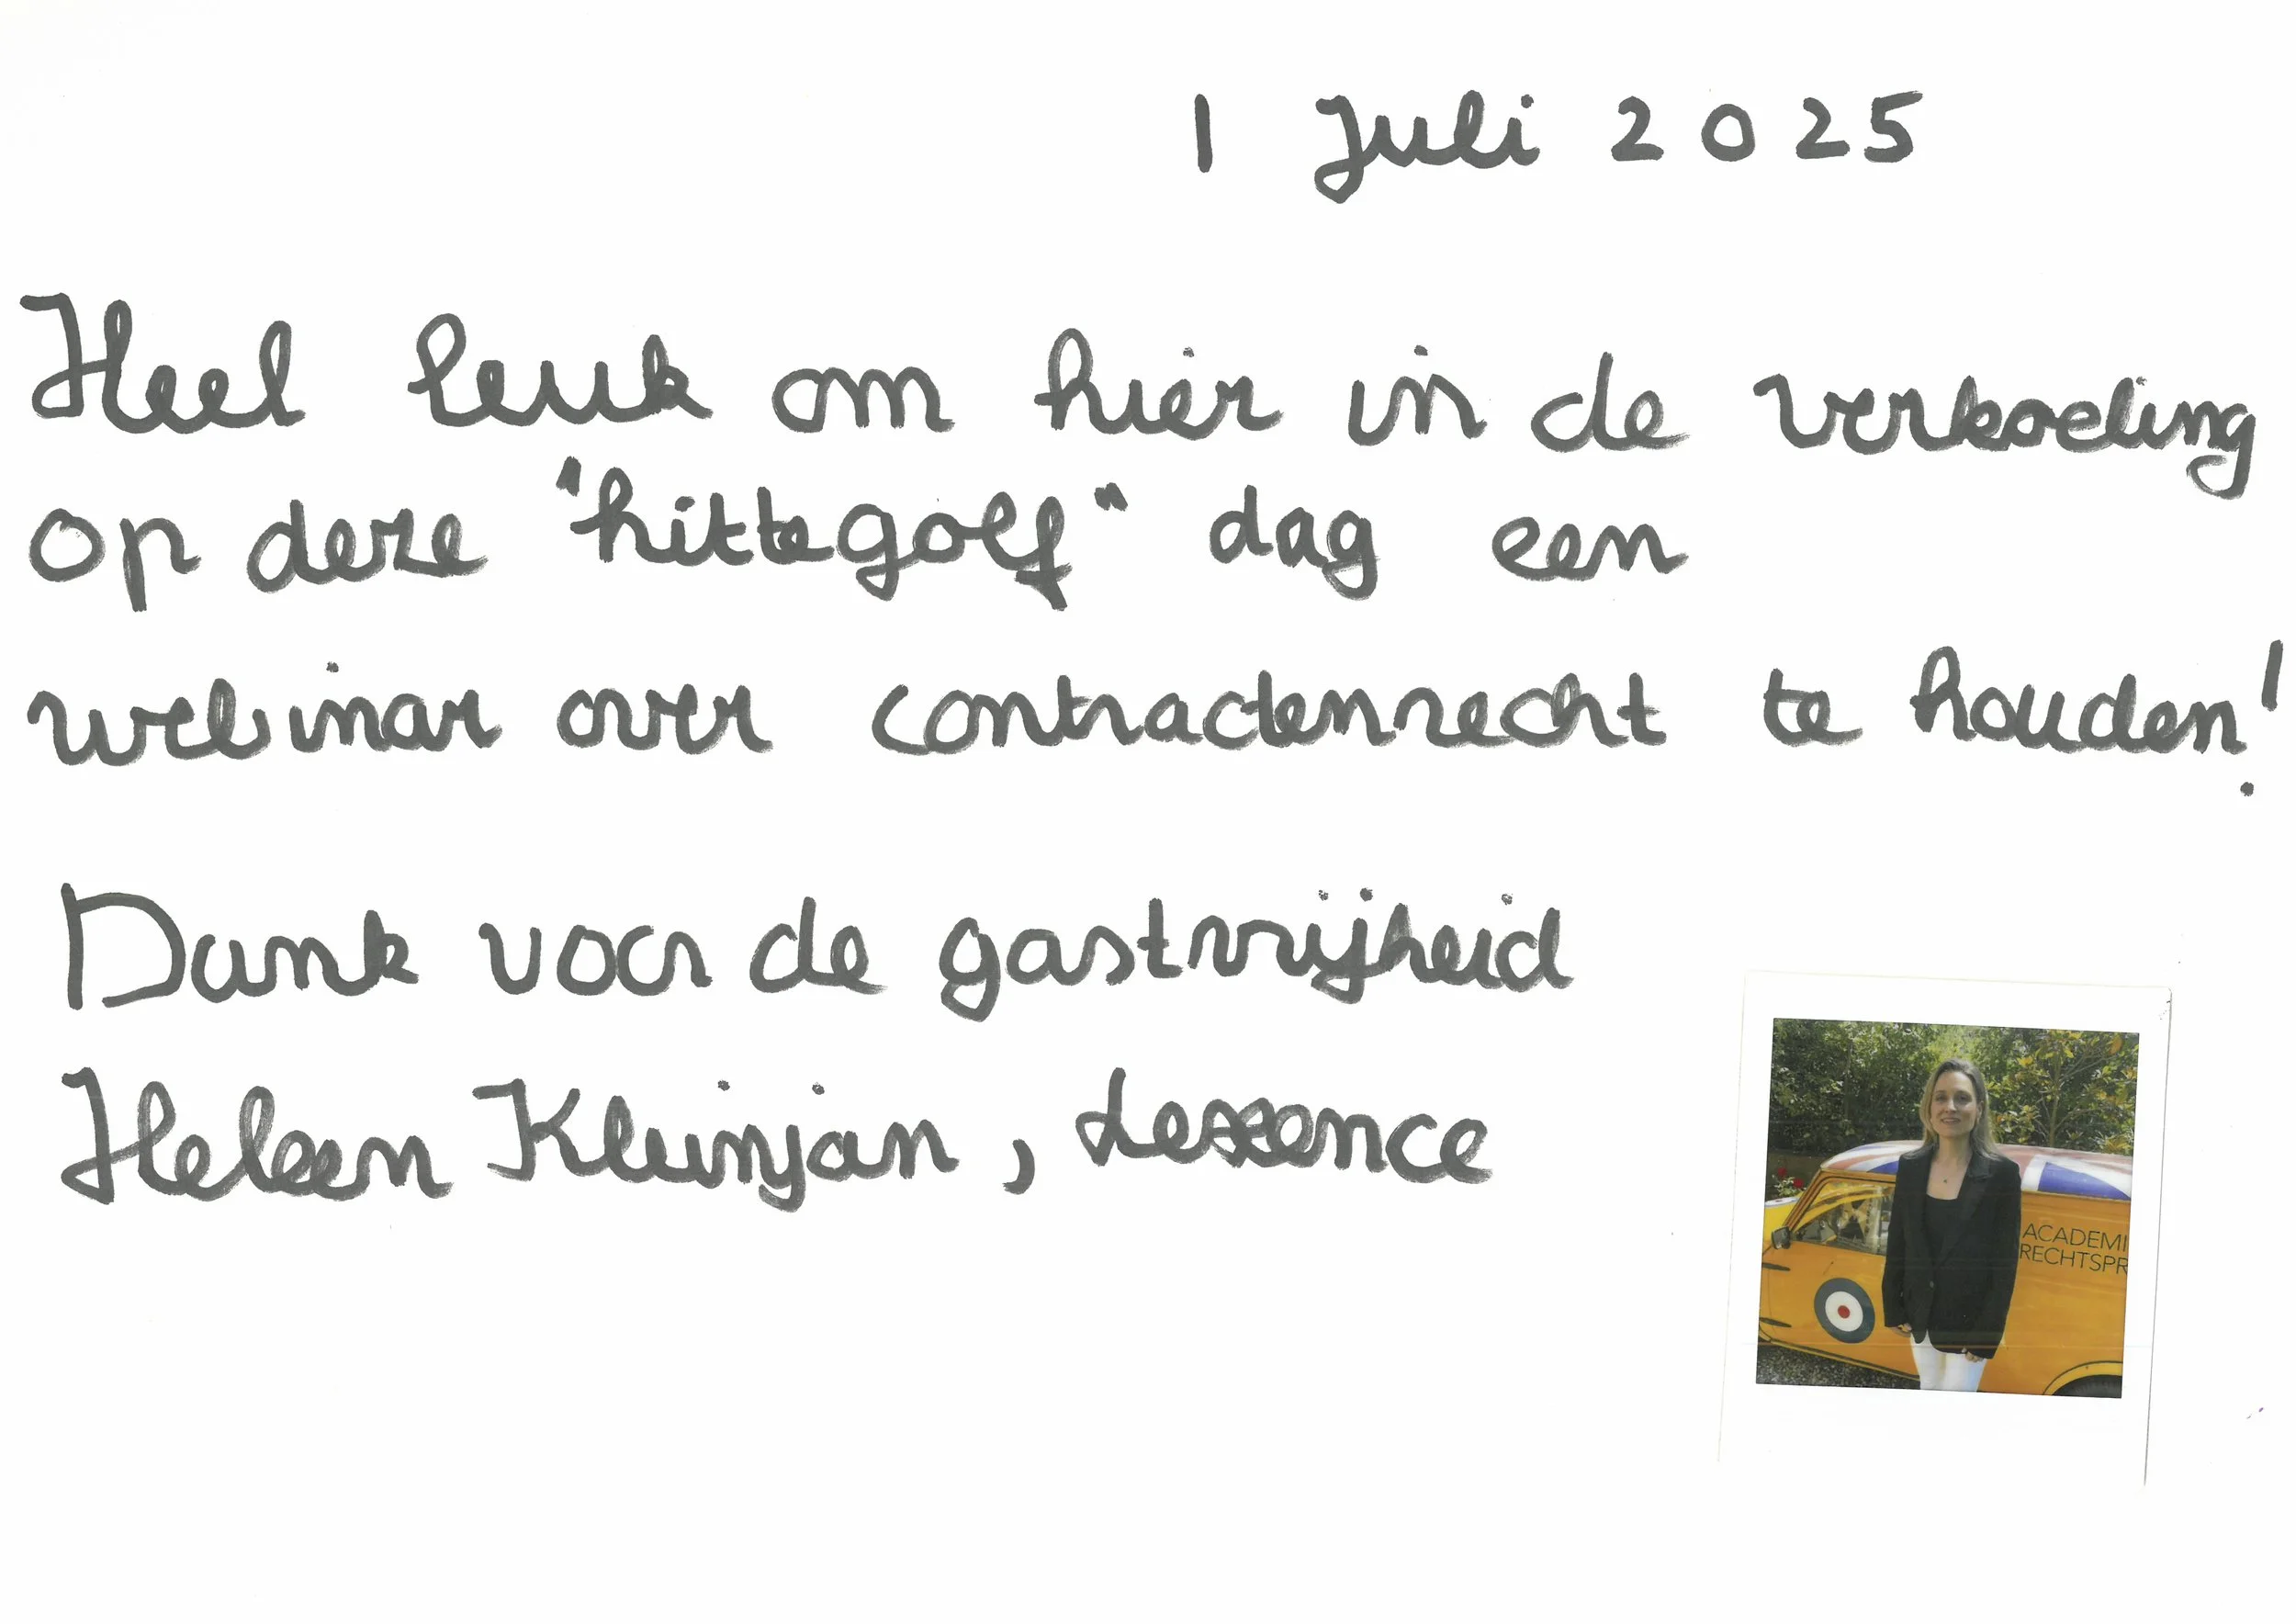 1 Juli 2025
Heel leuk om hier in de verkoeling
op deze "hittegolf" dag een
webinar over contractenrecht te houden!
Dank voor de gastvrijheid
Heleen Kleinjan, Lexence
ACADEMI
RECHTSPR